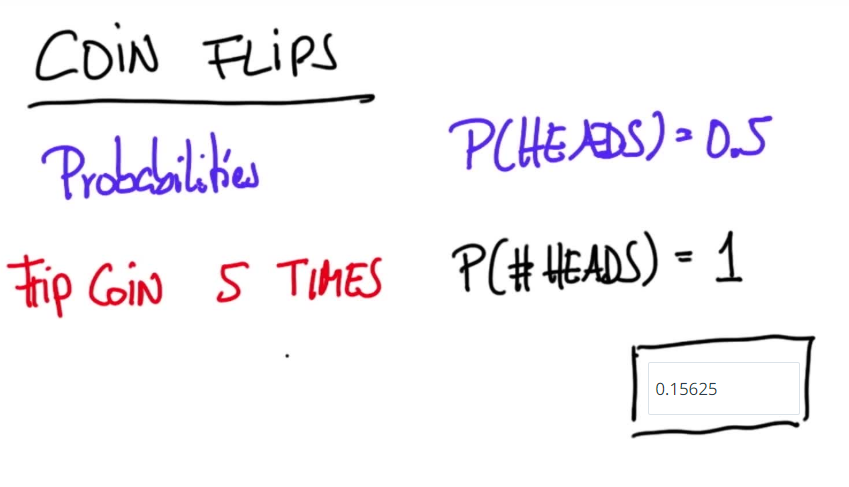 COIN FLIPS
Probabilities
P(HEADS) = 0.5
Flip COIN 5 TIMES
P(# HEADS) = 1
0.15625